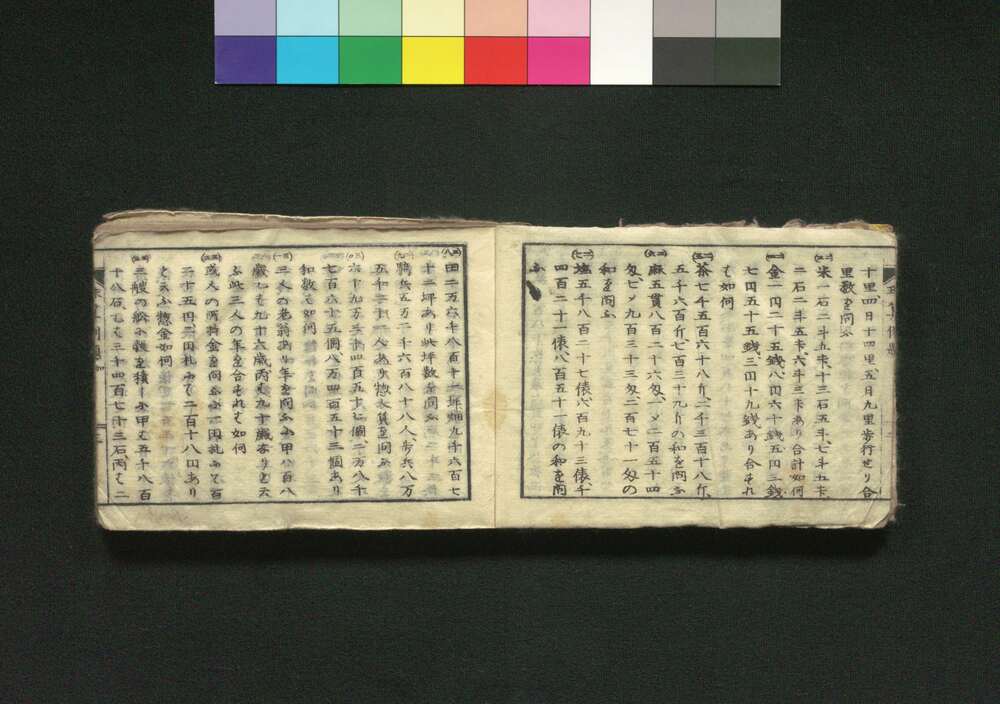 十里四日十四里、五日九里歩行せり合
里数を問ふ
米一石二斗九升、十三石五斗、七斗五升、
二石二斗五升、六斗三升あり合計如何
金一円二十五銭、八円六十銭、五円三銭
七円五十五銭、三円十九銭あり合すれ
も如何
茶七千五百六十八斤、二千三百十八斤、
五千六百斤、七百三十九斤の和を問ふ
麻五貫八百二十六匁、二百五十四
匁、九百三十三匁、二百七十一匁の
和を問ふ
塩五千八百二十七俵、六百九十三俵、千
四百二十一俵、八百五十一俵の和を問
ふ
田二万六千八百十一坪、畑九千六百七
十二坪あり此坪数を問ふ
騎兵五万二千六百八十八人、歩兵八万
五千三十一人あり惣人員を問ふ
六十九万三千四百五十七個、二万八千
七百六十五個、八万四百五十三個あり
和数も如何
三人の老翁あり年を問ふに甲ハ百八
歳乙も九十六歳丙も九十歳なりと云
ふ此三人の年を合すれも如何
或人の所持金を問ふに一円札にて百
二十五円二円札にて二百十八円あり
と云ふ惣金如何
三艘の船に穀を積しに甲も五千八百
十八石乙も三千四百七十三石丙も二